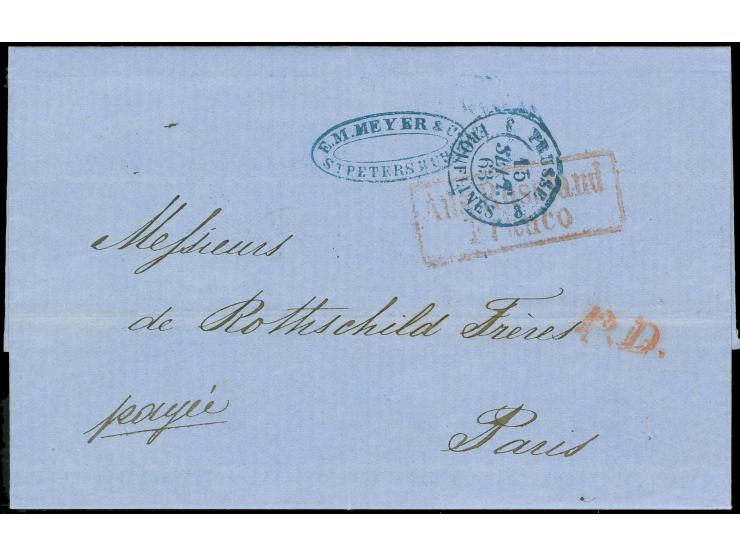 E.M. MEYER & C
ST PETERSBURG
PRUSSE
15
SEPT.
63
Aus Russland
Franco
Messieurs
de Rothschild Frères
P.D.
payée
Paris